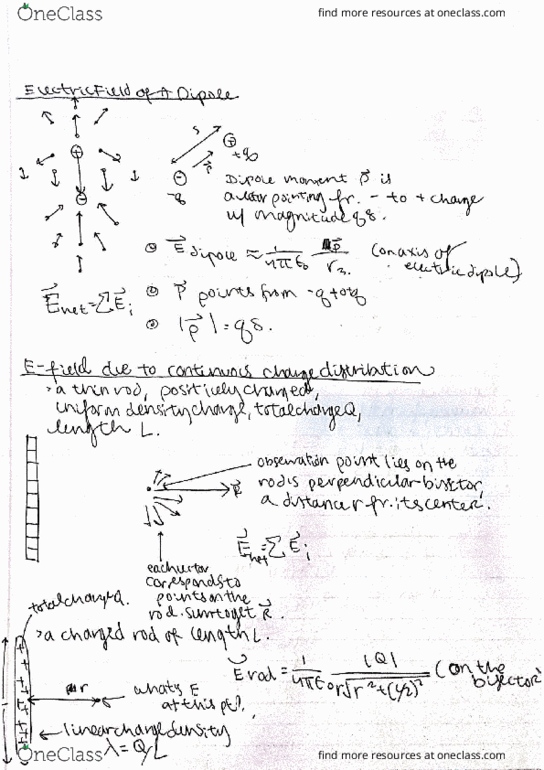 OneClass
find more resources at oneclass.com
Electric Field of A Dipole
s
+q
-q
Dipole moment p⃗ is
a vector pointing fr. - to + charge
w/ magnitude qs.
E⃗ dipole ≈ 1/4πε₀ p⃗/r³ (on axis of
electric dipole)
E⃗net = ΣE⃗i
p⃗ points from -q to +q
|p⃗| = qs.
E-field due to continuous charge distribution
a thin rod, positively charged,
uniform density charge, total charge Q,
length L.
observation point lies on the
rod's perpendicular bisector,
a distance r fr. its center.
E⃗net = Σ E⃗i
each vector
corresponds to
points on the
rod. sum to get
total charge Q.
a charged rod of length L.
Erod = 1/4πε₀ |Q|/r√r²+(L/2)² (on the
bisector)
r
what's E
at this pt?
linear charge density
λ = Q/L
OneClass
find more resources at oneclass.com